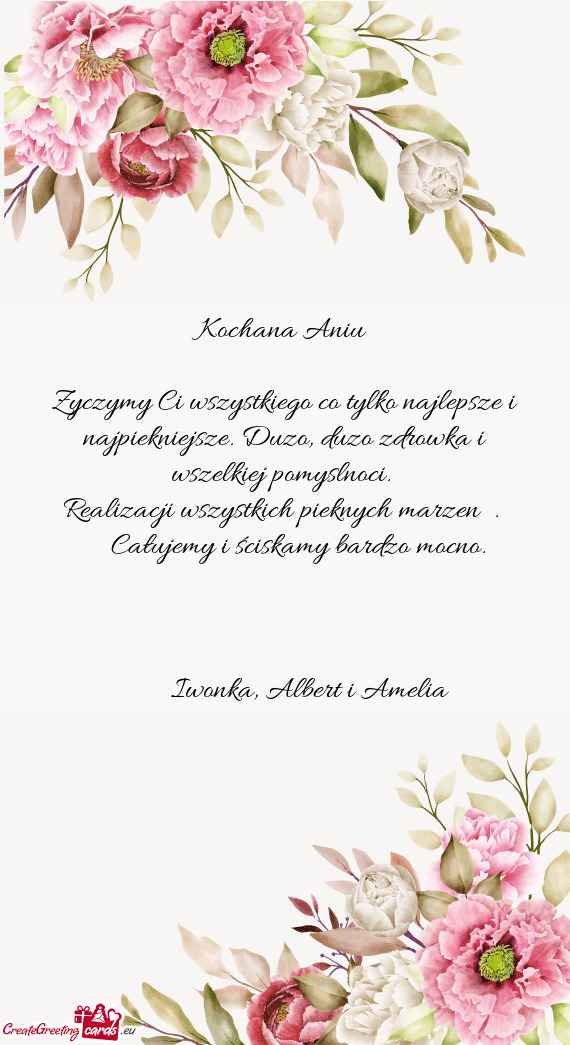 Kochana Aniu
Zyczymy Ci wszystkiego co tylko najlepsze i
najpiekniejsze. Duzo, duzo zdrowka i
wszelkiej pomyslnoci.
Realizacji wszystkich pieknych marzen .
Całujemy i ściskamy bardzo mocno.
Iwonka, Albert i Amelia
CreateGreeting cards .eu